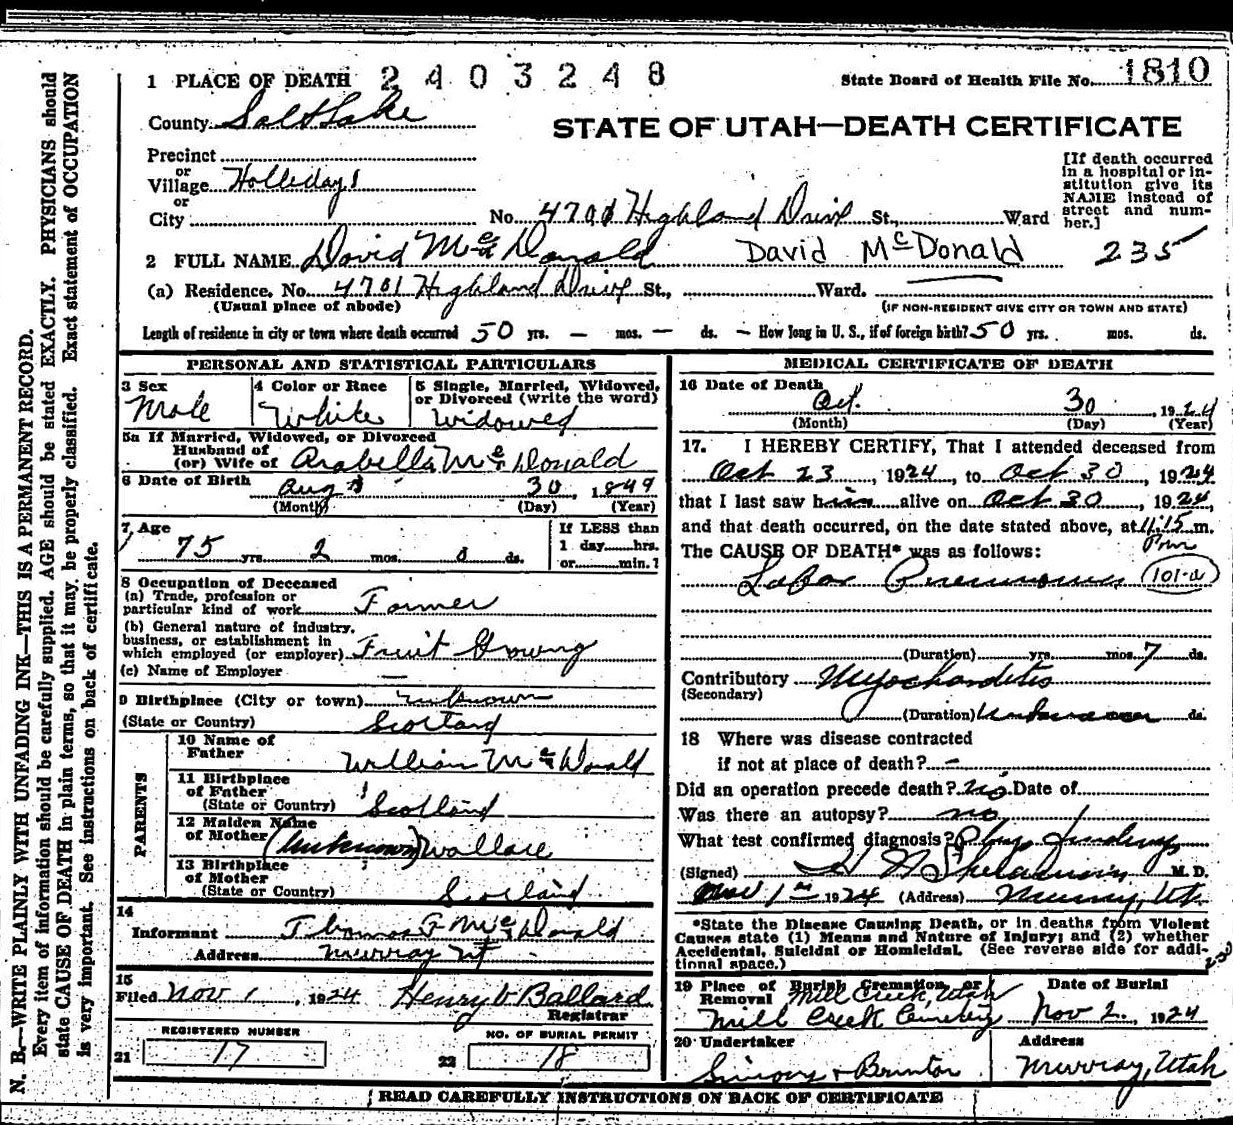 N. B.—WRITE PLAINLY WITH UNFADING INK—THIS IS A PERMANENT RECORD.
Every item of information should be carefully supplied. AGE should be stated EXACTLY. PHYSICIANS should
state CAUSE OF DEATH in plain terms, so that it may be properly classified. Exact statement of OCCUPATION
is very important. See instructions on back of certificate.
1 PLACE OF DEATH 2403248 State Board of Health File No. 1810
County Salt Lake
STATE OF UTAH—DEATH CERTIFICATE
Precinct
or
Village Holladay
or
City No. 4701 Highland Drive St., Ward
[If death occurred
in a hospital or in-
stitution give its
NAME instead of
street and num-
ber.]
2 FULL NAME David McDonald David McDonald 235
(a) Residence. No. 4701 Highland Drive St., Ward.
(Usual place of abode) (IF NON-RESIDENT GIVE CITY OR TOWN AND STATE)
Length of residence in city or town where death occurred 50 yrs. — mos. — ds. — How long in U. S., if of foreign birth? 50 yrs. mos. ds.
PERSONAL AND STATISTICAL PARTICULARS
3 Sex
Male
4 Color or Race
White
5 Single, Married, Widowed,
or Divorced (write the word)
Widowed
5a If Married, Widowed, or Divorced
Husband of
(or) Wife of Arabella McDonald
6 Date of Birth Aug 30, 1849
(Month) (Day) (Year)
7 Age
75 yrs. 2 mos. 0 ds.
If LESS than
1 day......hrs.
or......min.?
8 Occupation of Deceased
(a) Trade, profession or
particular kind of work Farmer
(b) General nature of industry,
business, or establishment in
which employed (or employer) Fruit Growing
(c) Name of Employer —
9 Birthplace (City or town) unknown
(State or Country) Scotland
PARENTS
10 Name of
Father William McDonald
11 Birthplace
of Father
(State or Country) Scotland
12 Maiden Name
of Mother (Unknown) Wallace
13 Birthplace
of Mother
(State or Country) Scotland
14
Informant Thomas F McDonald
Address Murray Ut
15
Filed Nov 1, 1924 Henry V Ballard
Registrar
REGISTERED NUMBER
21 17
NO. OF BURIAL PERMIT
22 18
MEDICAL CERTIFICATE OF DEATH
16 Date of Death
Oct. 30, 1924
(Month) (Day) (Year)
17. I HEREBY CERTIFY, That I attended deceased from
Oct 23, 1924, to Oct 30, 1924
that I last saw him alive on Oct 30, 1924,
and that death occurred, on the date stated above, at 11:15 m.
Pm
The CAUSE OF DEATH* was as follows:
Lobar Pneumonia 101-a
(Duration) yrs. mos. 7 ds.
Contributory Myocharditis
(Secondary)
(Duration) Unknown ds.
18 Where was disease contracted
if not at place of death? —
Did an operation precede death? no Date of
Was there an autopsy? no
What test confirmed diagnosis? Phys findings
(Signed) M. D.
Nov 1st 1924 (Address) Murray, Ut.
*State the Disease Causing Death, or in deaths from Violent
Causes state (1) Means and Nature of Injury; and (2) whether
Accidental, Suicidal or Homicidal. (See reverse side for addi-
tional space.)
19 Place of Burial, Cremation, or
Removal Mill Creek, Utah
Mill Creek Cemetery
Date of Burial
Nov 2, 1924
20 Undertaker
Address
Murray, Utah
READ CAREFULLY INSTRUCTIONS ON BACK OF CERTIFICATE